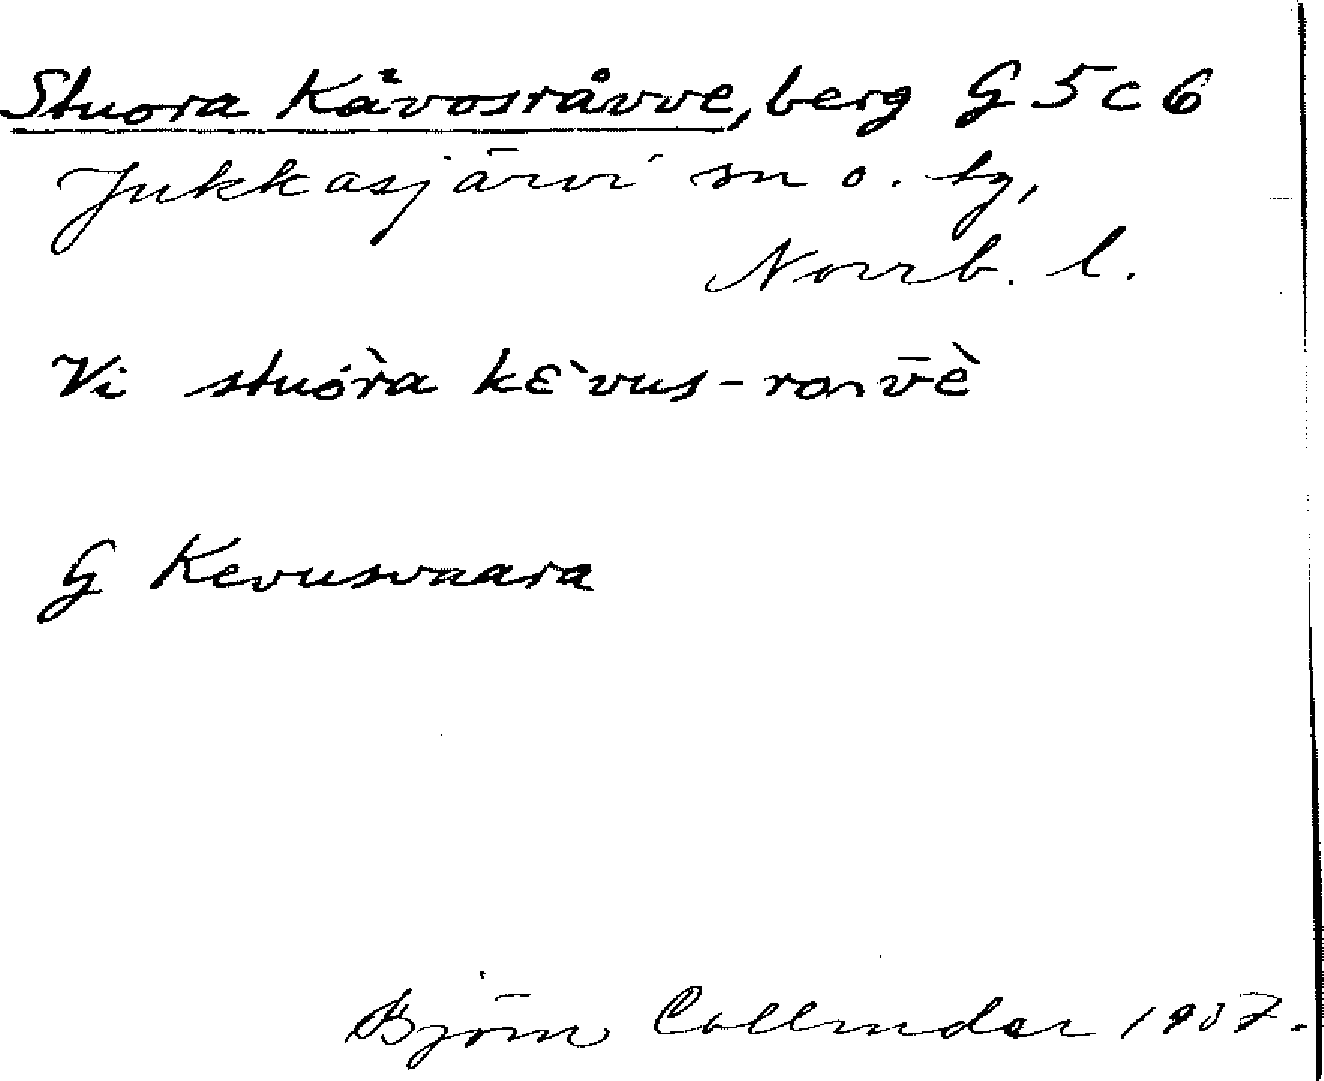 Stuora Kåvosråvve, berg G 5 c 6
Jukkasjärvi sn o. tg,
Norrb. l.
Vi stuòr̀a kɛ̀vus-rɔiv̄è
G Kevusvaara
Björn Collinder 1937.